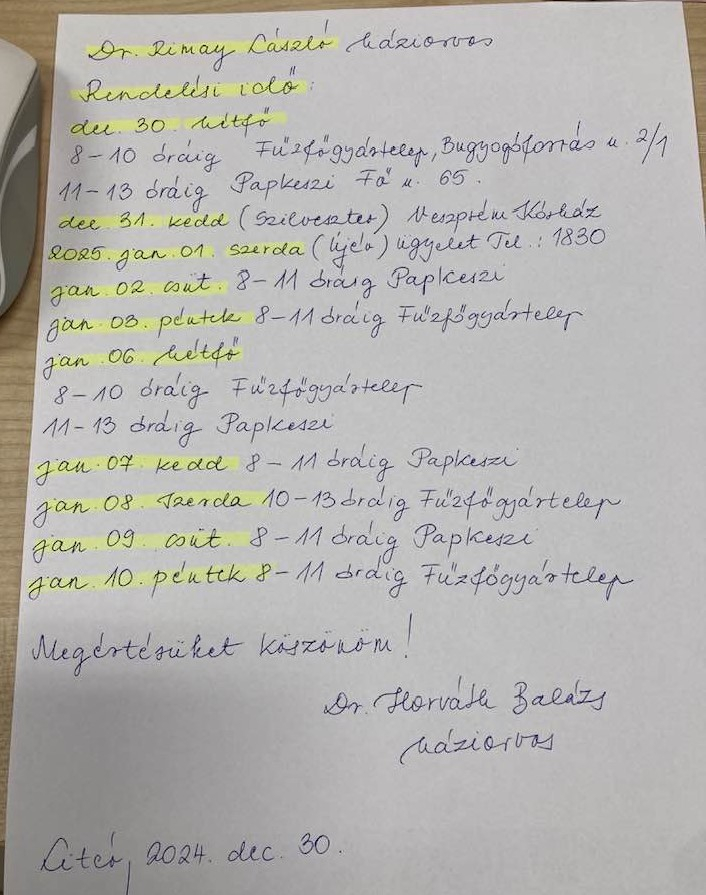 Dr. Rimay László háziorvos
Rendelési idő:
dec. 30. hétfő
8-10 óráig Fűzfőgyártelep, Bugyogóforrás u. 2/1
11-13 óráig Papkeszi Fő u. 65.
dec. 31. kedd (Szilveszter) Veszprém Kórház
2025. jan. 01. szerda (újév) ügyelet Tel.: 1830
jan. 02. csüt. 8-11 óráig Papkeszi
jan. 03. péntek 8-11 óráig Fűzfőgyártelep
jan. 06. hétfő
8-10 óráig Fűzfőgyártelep
11-13 óráig Papkeszi
jan. 07. kedd 8-11 óráig Papkeszi
jan. 08. szerda 10-13 óráig Fűzfőgyártelep
jan. 09. csüt. 8-11 óráig Papkeszi
jan. 10. péntek 8-11 óráig Fűzfőgyártelep
Megértésüket köszönöm!
Dr. Horváth Balázs
háziorvos
Litér, 2024. dec. 30.